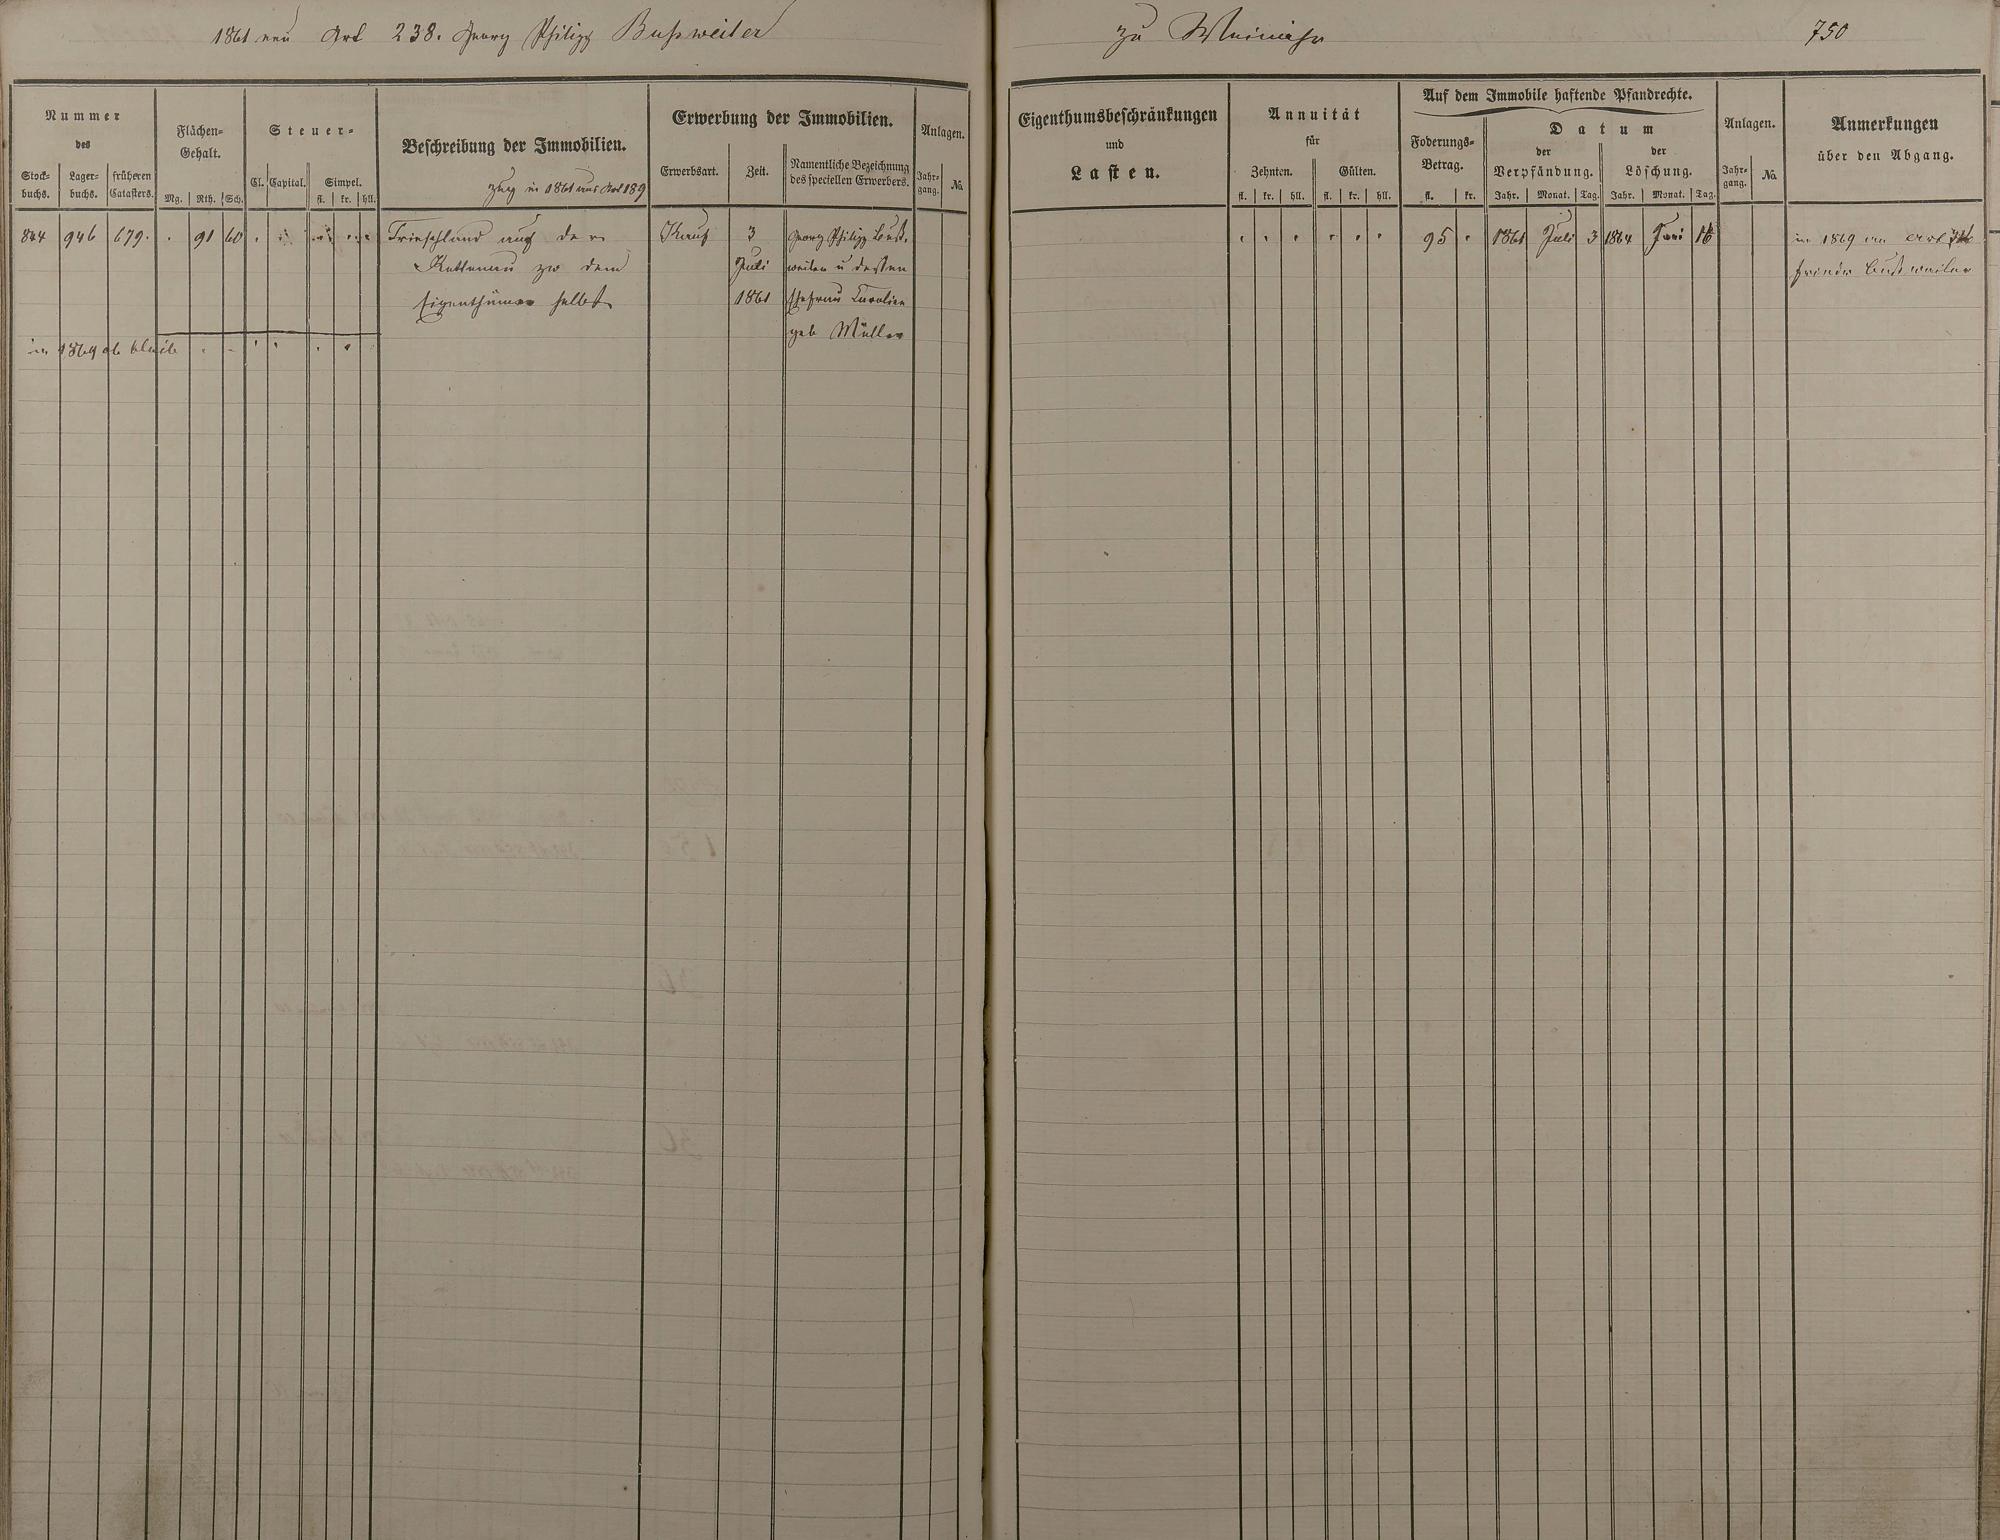 1861 neu Art 238. Georg Philipp Bußweiler
zu Weinähr
750
Nummer
des
Stock-
buchs.
Lager-
buchs.
früheren
Catasters.
Flächen-
Gehalt.
Mg. Rth. Sch.
Steuer-
Cl. Capital. Simpel.
fl. kr. hll.
Beschreibung der Immobilien.
Zug in 1861 aus Art 189
Erwerbung der Immobilien.
Erwerbsart. Zeit.
Namentliche Bezeichnung
des speciellen Erwerbers.
Anlagen.
Jahr-
gang.
No.
Eigenthumsbeschränkungen
und
Lasten.
Annuität
für
Zehnten. Gülten.
fl. kr. hll. fl. kr. hll.
Auf dem Immobile haftende Pfandrechte.
Foderungs-
Betrag.
fl. kr.
Datum
der
Verpfändung.
Jahr. Monat. Tag.
der
Löschung.
Jahr. Monat. Tag.
Anlagen.
Jahr-
gang.
No.
Anmerkungen
über den Abgang.
844 946 679. 91 60 Trieschland auf der Kauf 3 Georg Philipp Buß-
Kettenau zw dem Juli weiler u dessen
Eigenthümer selbst 1861 Ehefrau Carolina
geb Müller
95 1861 Juli 3 1864 Juni 16 in 1869 an Art
Friedr Bußweiler
in 1869 ab bleib